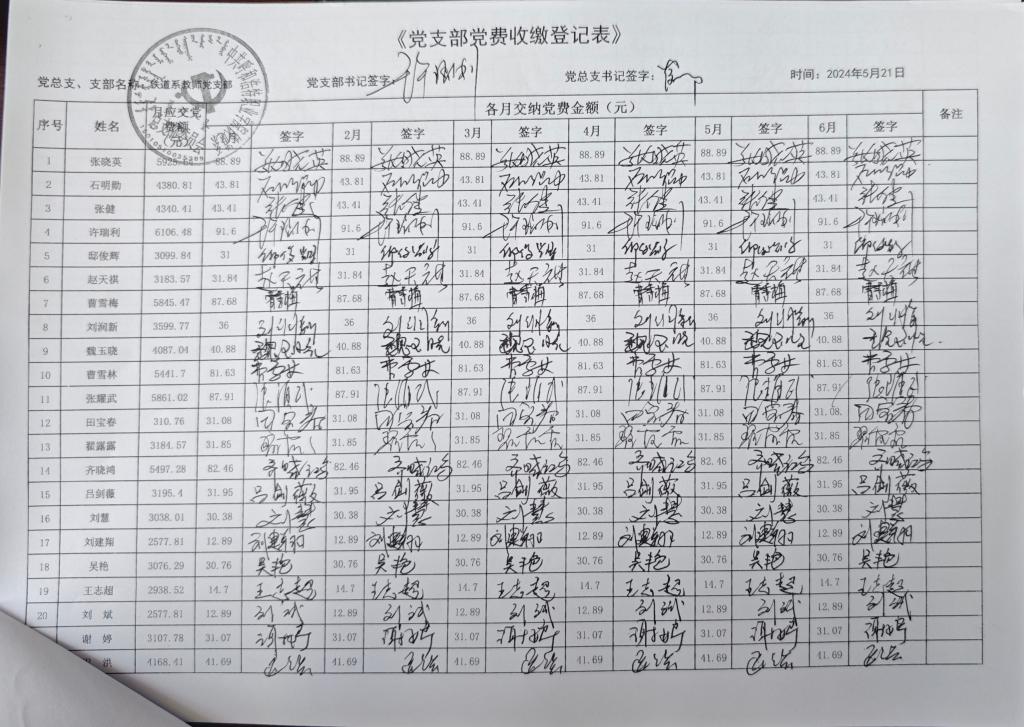 《党支部党费收缴登记表》
党总支、支部名称：铁道系教师党支部 党支部书记签字： 许瑞利 党总支书记签字： 时间：2024年5月21日
序号 姓名 月应交党费额 各月交纳党费金额（元） 备注
签字 2月 签字 3月 签字 4月 签字 5月 签字 6月 签字
1 张晓英 88.89 张晓英 88.89 张晓英 88.89 张晓英 88.89 张晓英 88.89 张晓英 88.89 张晓英
2 石明勋 4380.81 43.81 43.81 43.81 43.81 43.81 43.81
3 张健 4340.41 43.41 张健 43.41 张健 43.41 张健 43.41 张健 43.41 张健 43.41 张健
4 许瑞利 6106.48 91.6 许瑞利 91.6 许瑞利 91.6 许瑞利 91.6 许瑞利 91.6 许瑞利 91.6 许瑞利
5 邸俊辉 3099.84 31 31 31 31 31 31
6 赵天祺 3183.57 31.84 赵天祺 31.84 赵天祺 31.84 赵天祺 31.84 赵天祺 31.84 赵天祺 31.84 赵天祺
7 曹雪梅 5845.47 87.68 曹雪梅 87.68 曹雪梅 87.68 曹雪梅 87.68 曹雪梅 87.68 曹雪梅 87.68 曹雪梅
8 刘润新 3599.77 36 刘润新 36 刘润新 36 刘润新 36 刘润新 36 刘润新 36 刘润新
9 魏玉晓 4087.04 40.88 魏玉晓 40.88 魏玉晓 40.88 魏玉晓 40.88 魏玉晓 40.88 魏玉晓 40.88
10 曹雪林 5441.7 81.63 81.63 81.63 81.63 81.63 81.63
11 张耀武 5861.02 87.91 87.91 87.91 87.91 87.91 87.91
12 田宝春 310.76 31.08 田宝春 31.08 田宝春 31.08 田宝春 31.08 田宝春 31.08 田宝春 31.08 田宝春
13 翟露露 3184.57 31.85 31.85 31.85 31.85 31.85 31.85
14 齐晓鸿 5497.28 82.46 齐晓鸿 82.46 齐晓鸿 82.46 齐晓鸿 82.46 齐晓鸿 82.46 齐晓鸿 82.46 齐晓鸿
15 吕剑薇 3195.4 31.95 吕剑薇 31.95 吕剑薇 31.95 吕剑薇 31.95 吕剑薇 31.95 吕剑薇 31.95 吕剑薇
16 刘慧 3038.01 30.38 刘慧 30.38 刘慧 30.38 刘慧 30.38 刘慧 30.38 刘慧 30.38 刘慧
17 刘建翔 2577.81 12.89 刘建翔 12.89 刘建翔 12.89 刘建翔 12.89 刘建翔 12.89 刘建翔 12.89 刘建翔
18 吴艳 3076.29 30.76 吴艳 30.76 吴艳 30.76 吴艳 30.76 吴艳 30.76 吴艳 30.76 吴艳
19 王志超 2938.52 14.7 王志超 14.7 王志超 14.7 王志超 14.7 王志超 14.7 王志超 14.7 王志超
20 刘 斌 2577.81 12.89 刘斌 12.89 刘斌 12.89 刘斌 12.89 刘斌 12.89 刘斌 12.89 刘斌
谢 婷 3107.78 31.07 谢婷 31.07 谢婷 31.07 谢婷 31.07 谢婷 31.07 谢婷 31.07 谢婷
洪 4168.41 41.69 41.69 41.69 41.69 41.69 41.69